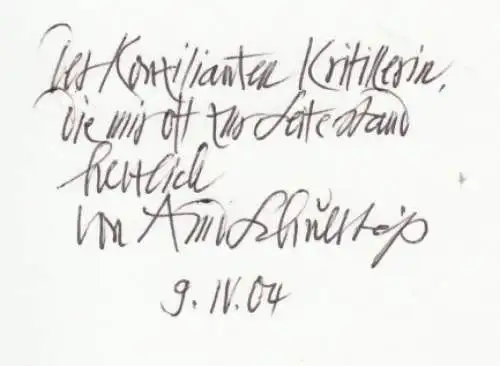 Der Konzilianten Kritikerin,
die mir oft zur Seite stand
herzlich
von Arno Schulz
9. IV. 04